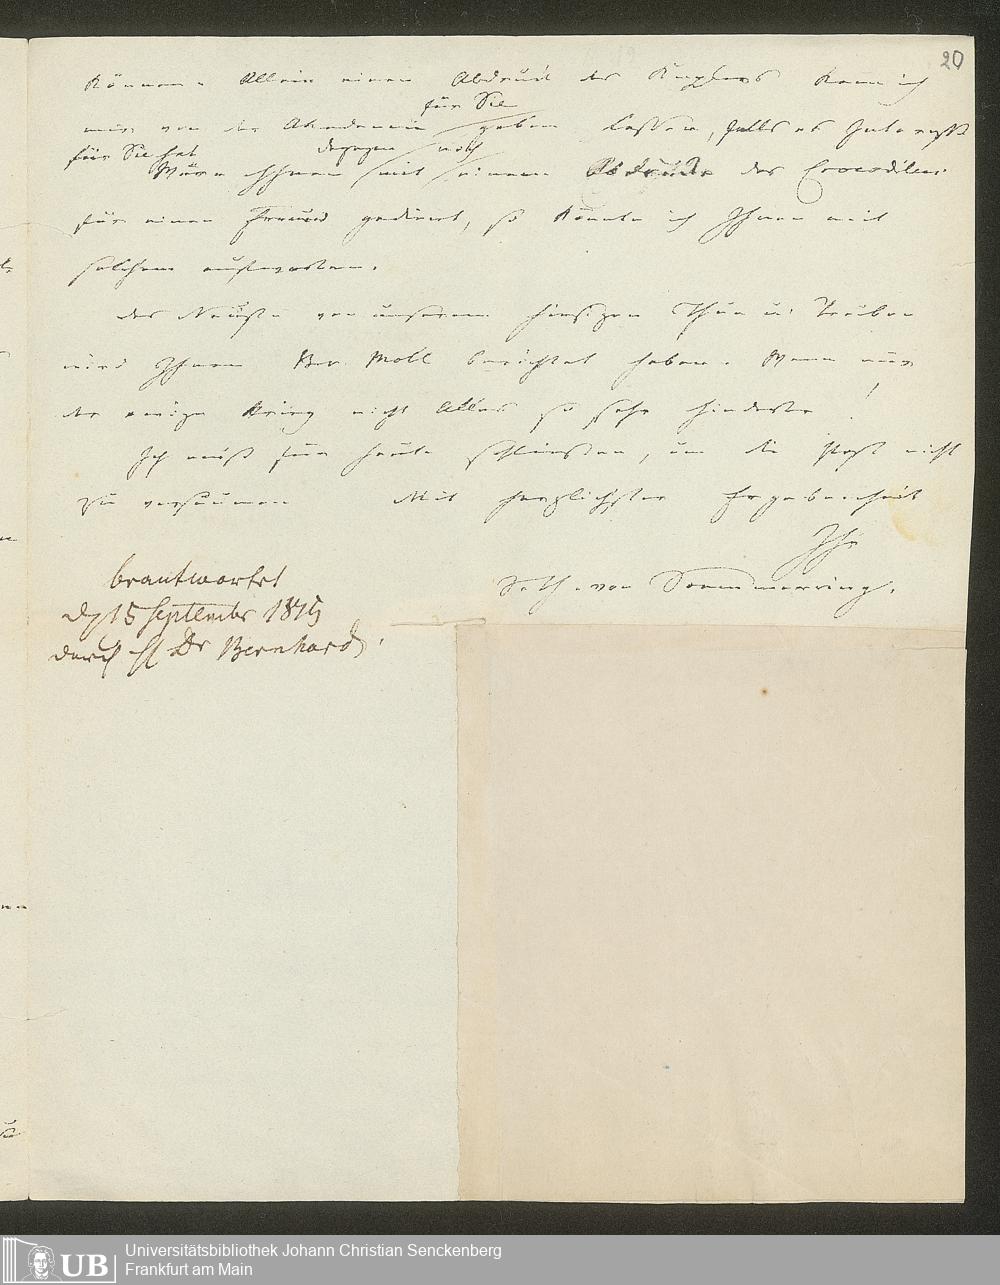 20
können. Allein einen Abdruck des Kupfers kann ich
für Sie
mir von der Akademie geben lassen, falls es Interesse
für Sie hat dagegen noch
Wäre Ihnen mit einem Abdrucke des Crocodiles
für einen Freund gedient, so könnte ich Ihnen mit
solchem aufwarten.
Das Neuste von unserem hiesigen Thun u. Treiben
wird Ihnen Br. Moll berichtet haben. Wenn nur
der ewige Krieg nicht Alles so sehr hinderte!
Ich muß für heute schliessen, um die Post nicht
zu versäumen Mit herzlichster Ergebenheit
Ihr
S. Th. von Soemmerring.
beantwortet
d 15 September 1815
durch H Dr Bernhard.
UB Universitätsbibliothek Johann Christian Senckenberg
Frankfurt am Main